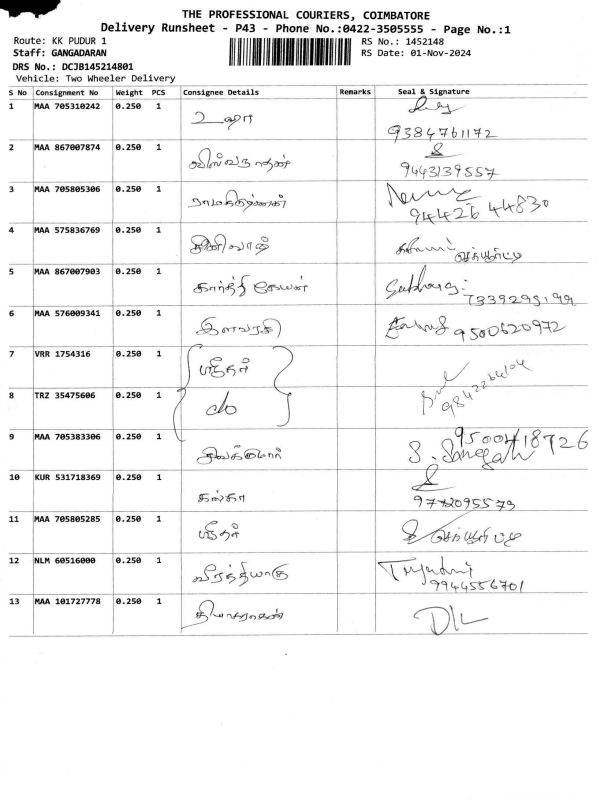 THE PROFESSIONAL COURIERS, COIMBATORE
Delivery Runsheet - P43 - Phone No.:0422-3505555 - Page No.:1
Route: KK PUDUR 1
RS No.: 1452148
Staff: GANGADARAN
RS Date: 01-Nov-2024
DRS No.: DCJB145214801
Vehicle: Two Wheeler Delivery
S No Consignment No Weight PCS Consignee Details Remarks Seal & Signature
1 MAA 705310242 0.250 1 உஷா
9384761172
2 MAA 867007874 0.250 1 விஸ்வநாதன்
9443139557
3 MAA 705805306 0.250 1 ராமகிருஷ்ணன்
94426 44830
4 MAA 575836769 0.250 1
5 MAA 867007903 0.250 1 கார்த்திகேயன்
7339295199
6 MAA 576009341 0.250 1 இளவரசி 9500620972
7 VRR 1754316 0.250 1 ஸ்ரீதர்
9842264104
8 TRZ 35475606 0.250 1 c/o
9 MAA 705383306 0.250 1 சிவக்குமார்
9500418726
10 KUR 531718369 0.250 1
9772095579
11 MAA 705805285 0.250 1 ஸ்ரீதர்
12 NLM 60516000 0.250 1
9944556701
13 MAA 101727778 0.250 1